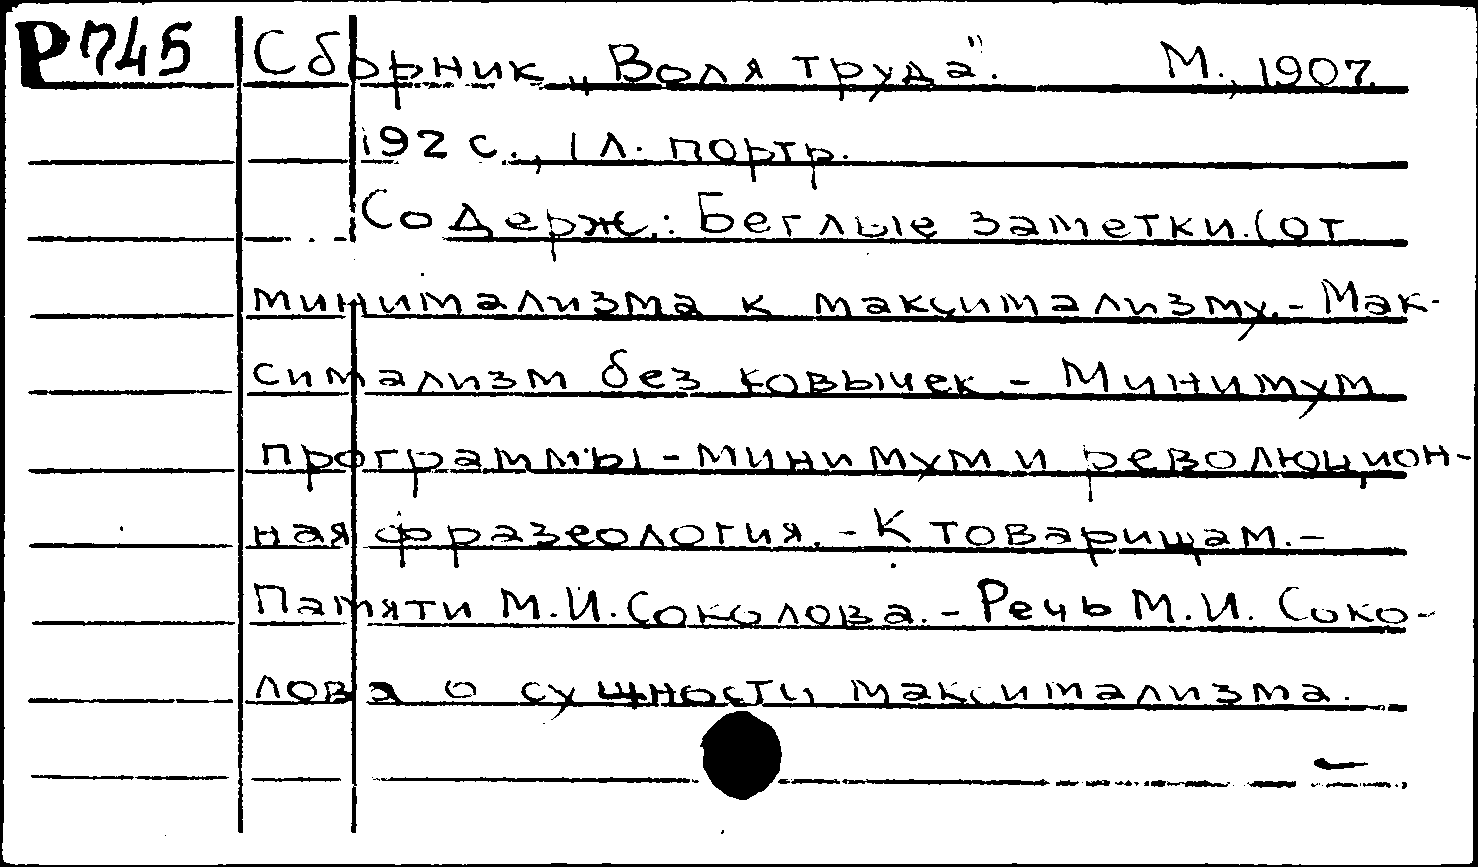 Р745 Сборник „Воля труда". М., 1907.
192 с., 1 л. портр.
Содерж.: Беглые заметки. (от
минимализма к максимализму. - Мак-
симализм без ковычек - Минимум
программы - минимум и революцион-
ная фразеология. - К товарищам. -
Памяти М.И. Соколова. - Речь М.И. Соко-
лова о сущности максимализма.